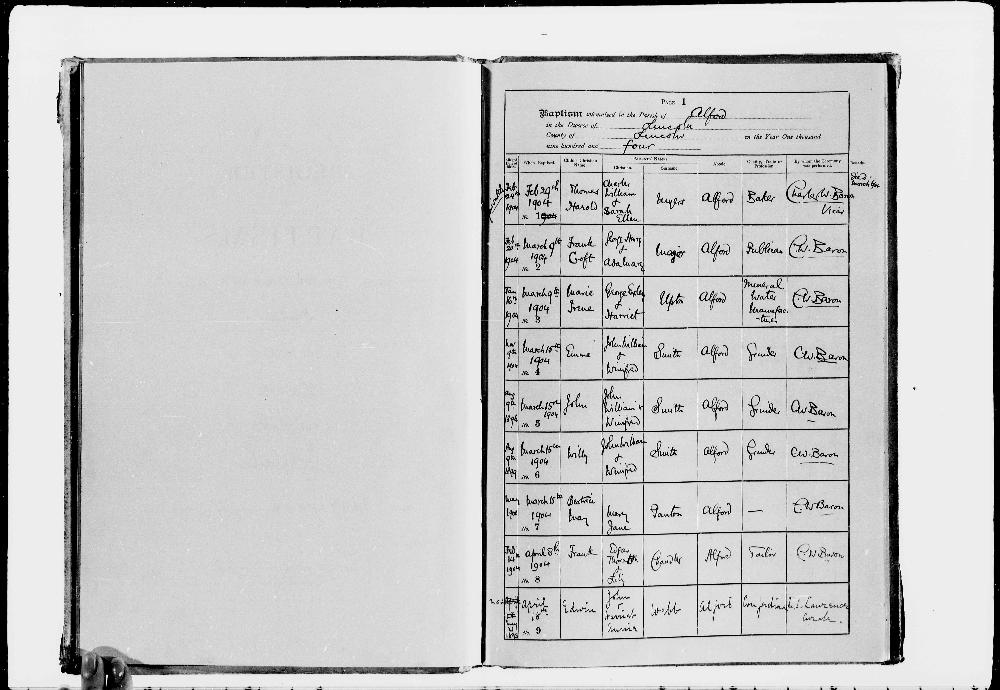 PAGE 1
Baptism solemnized in the Parish of Alford
in the Diocese of Lincoln
County of Lincoln in the Year One thousand
nine hundred and four
When Baptized. Child's Christian Name. Parents' Names Abode Quality, Trade or Profession By whom the Ceremony was performed.
Christian. Surname
Feb 29th 1904 No. 1 Thomas Harold Charles William & Sarah Ellen Myers Alford Baker Charles W. Baron Vicar
March 9th 1904 No. 2 Frank Croft George Henry & Ada Mary Major Alford Publican C.W. Baron
Jan 16th 1904 March 9th 1904 No. 3 Marie Irene George & Harriet Upton Alford Mineral Water Manufac-turer C.W. Baron
March 15th 1904 No. 4 Emma John William & Winifred Smith Alford Grinder C.W. Baron
Aug 9th 1896 March 15th 1904 No. 5 John John William & Winifred Smith Alford Grinder C.W. Baron
Aug 9th 1899 March 15th 1904 No. 6 Willy John William & Winifred Smith Alford Grinder C.W. Baron
May March 15th 1904 No. 7 Beatrice May Mary Jane Panton Alford — C.W. Baron
Feb 14th 1904 April 8th 1904 No. 8 Frank Edgar & Lily Chandler Alford Tailor C.W. Baron
April 16th No. 9 Edwin John & Webb Alford Lawrence Curate.